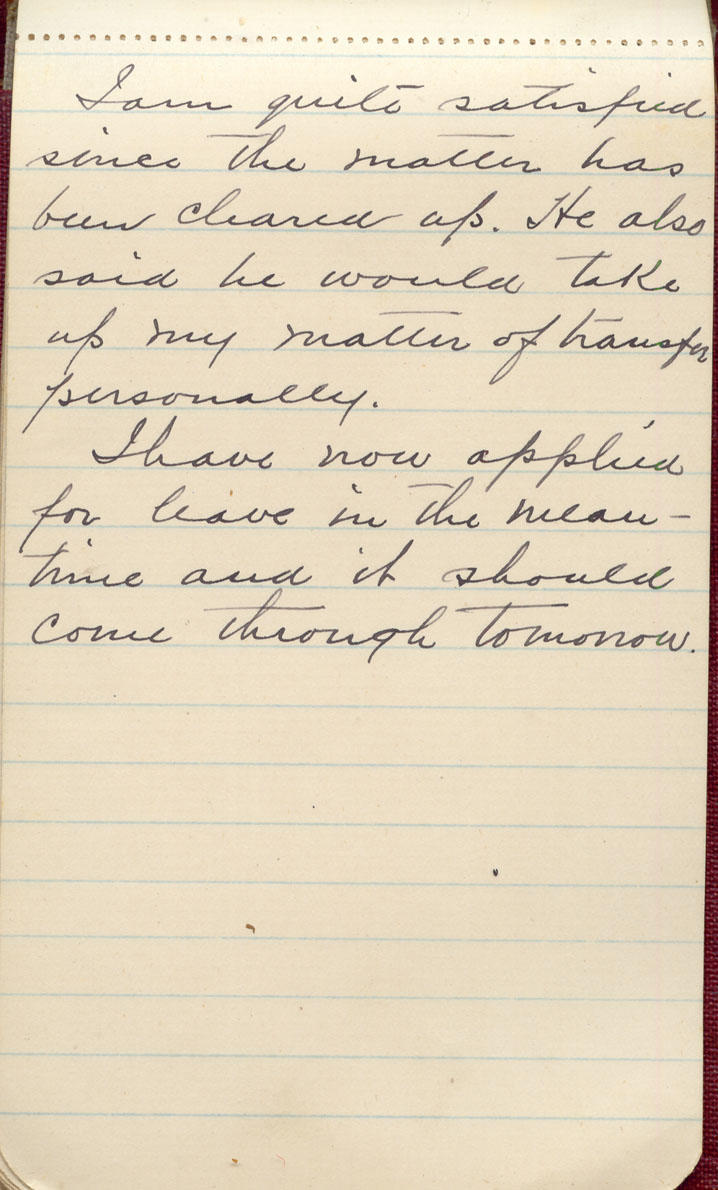 I am quite satisfied
since the matter has
been cleared up. He also
said he would take
up my matter of transfer
personally.
I have now applied
for leave in the mean-
time and it should
come through tomorrow.